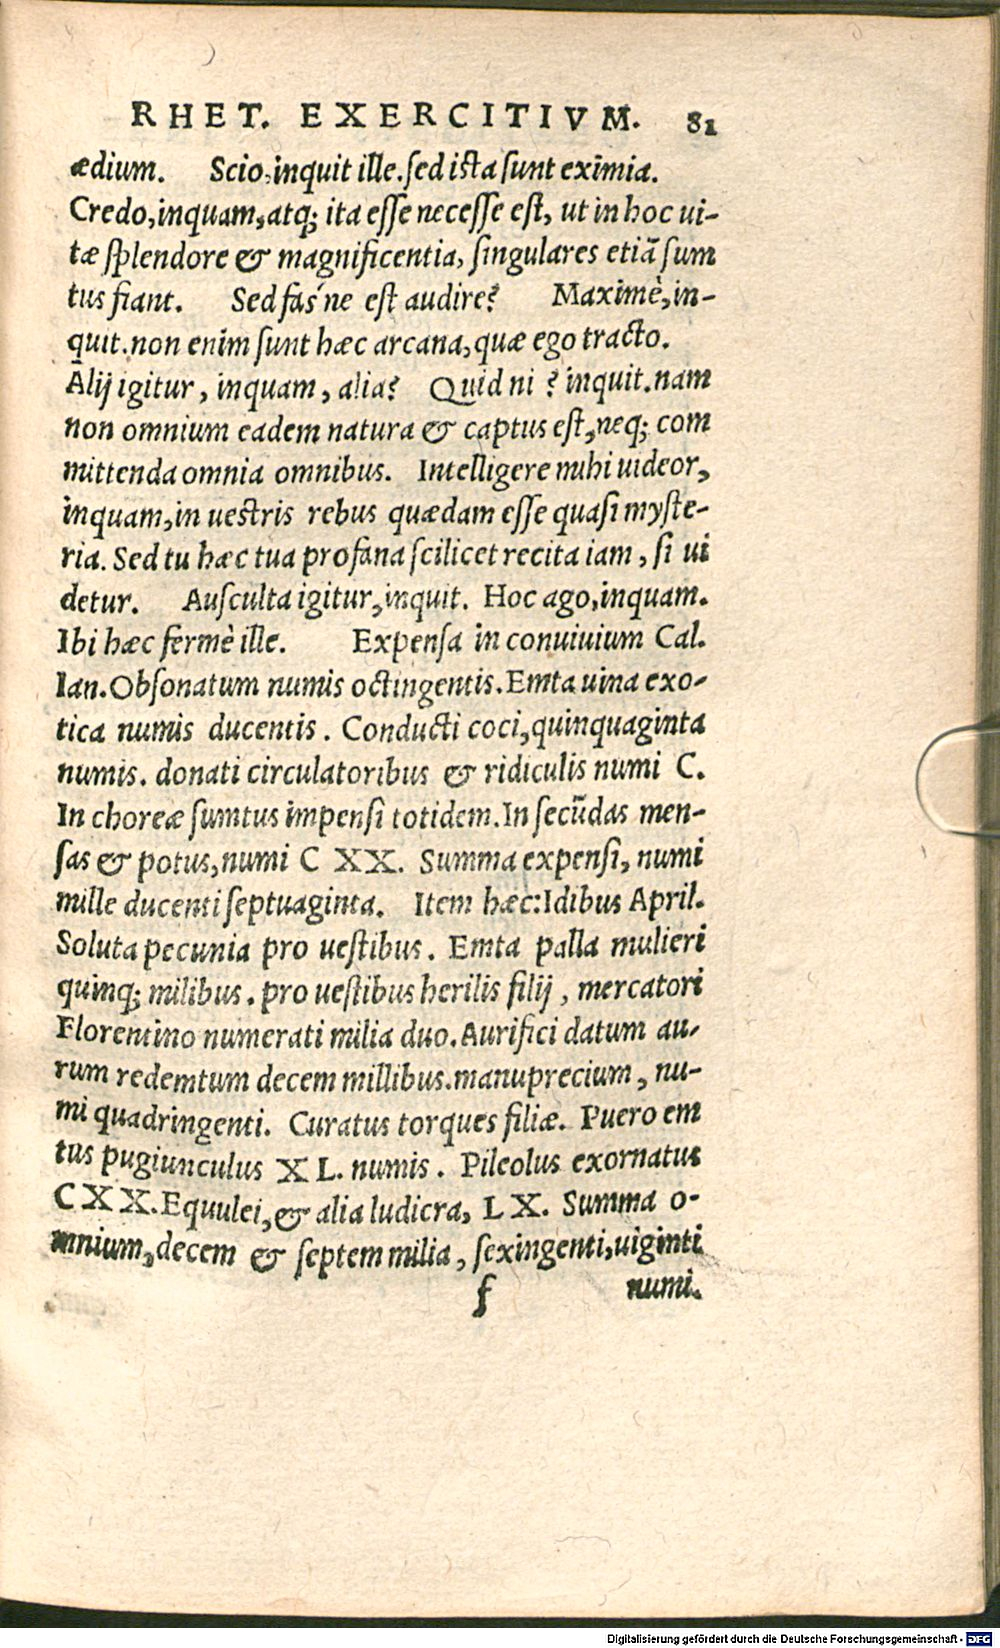 RHET. EXERCITIVM. 81
ædium. Scio, inquit ille. ſed iſta ſunt eximia.
Credo, inquam, atq; ita eſſe neceſſe eſt, ut in hoc ui-
tæ ſplendore & magnificentia, ſingulares etiã ſum
tus fiant. Sed fas´ne eſt audire? Maximè, in-
quit. non enim ſunt hæc arcana, quæ ego tracto.
Alij igitur, inquam, alia? Quid ni? inquit. nam
non omnium eadem natura & captus eſt, neq; com
mittenda omnia omnibus. Intelligere mihi uideor,
inquam, in ueſtris rebus quædam eſſe quaſi myſte-
ria. Sed tu hæc tua profana ſcilicet recita iam, ſi ui
detur. Auſculta igitur, inquit. Hoc ago, inquam.
Ibi hæc fermè ille. Expenſa in conuiuium Cal.
Ian. Obſonatum numis octingentis. Emta uina exo-
tica numis ducentis. Conducti coci, quinquaginta
numis. donati circulatoribus & ridiculis numi C.
In choreæ ſumtus impenſi totidem. In ſecũdas men-
ſas & potus, numi C XX. Summa expenſi, numi
mille ducenti ſeptuaginta. Item hæc: Idibus April.
Soluta pecunia pro ueſtibus. Emta palla mulieri
quinq; milibus. pro ueſtibus herilis filij, mercatori
Florentino numerati milia duo. Aurifici datum au-
rum redemtum decem millibus. manuprecium, nu-
mi quadringenti. Curatus torques filiæ. Puero em
tus pugiunculus XL. numis. Pileolus exornatus
CXX. Equulei, & alia ludicra, LX. Summa o-
mnium, decem & ſeptem milia, ſexingenti, uiginti
f numi.
Digitalisierung gefördert durch die Deutsche Forschungsgemeinschaft - DFG